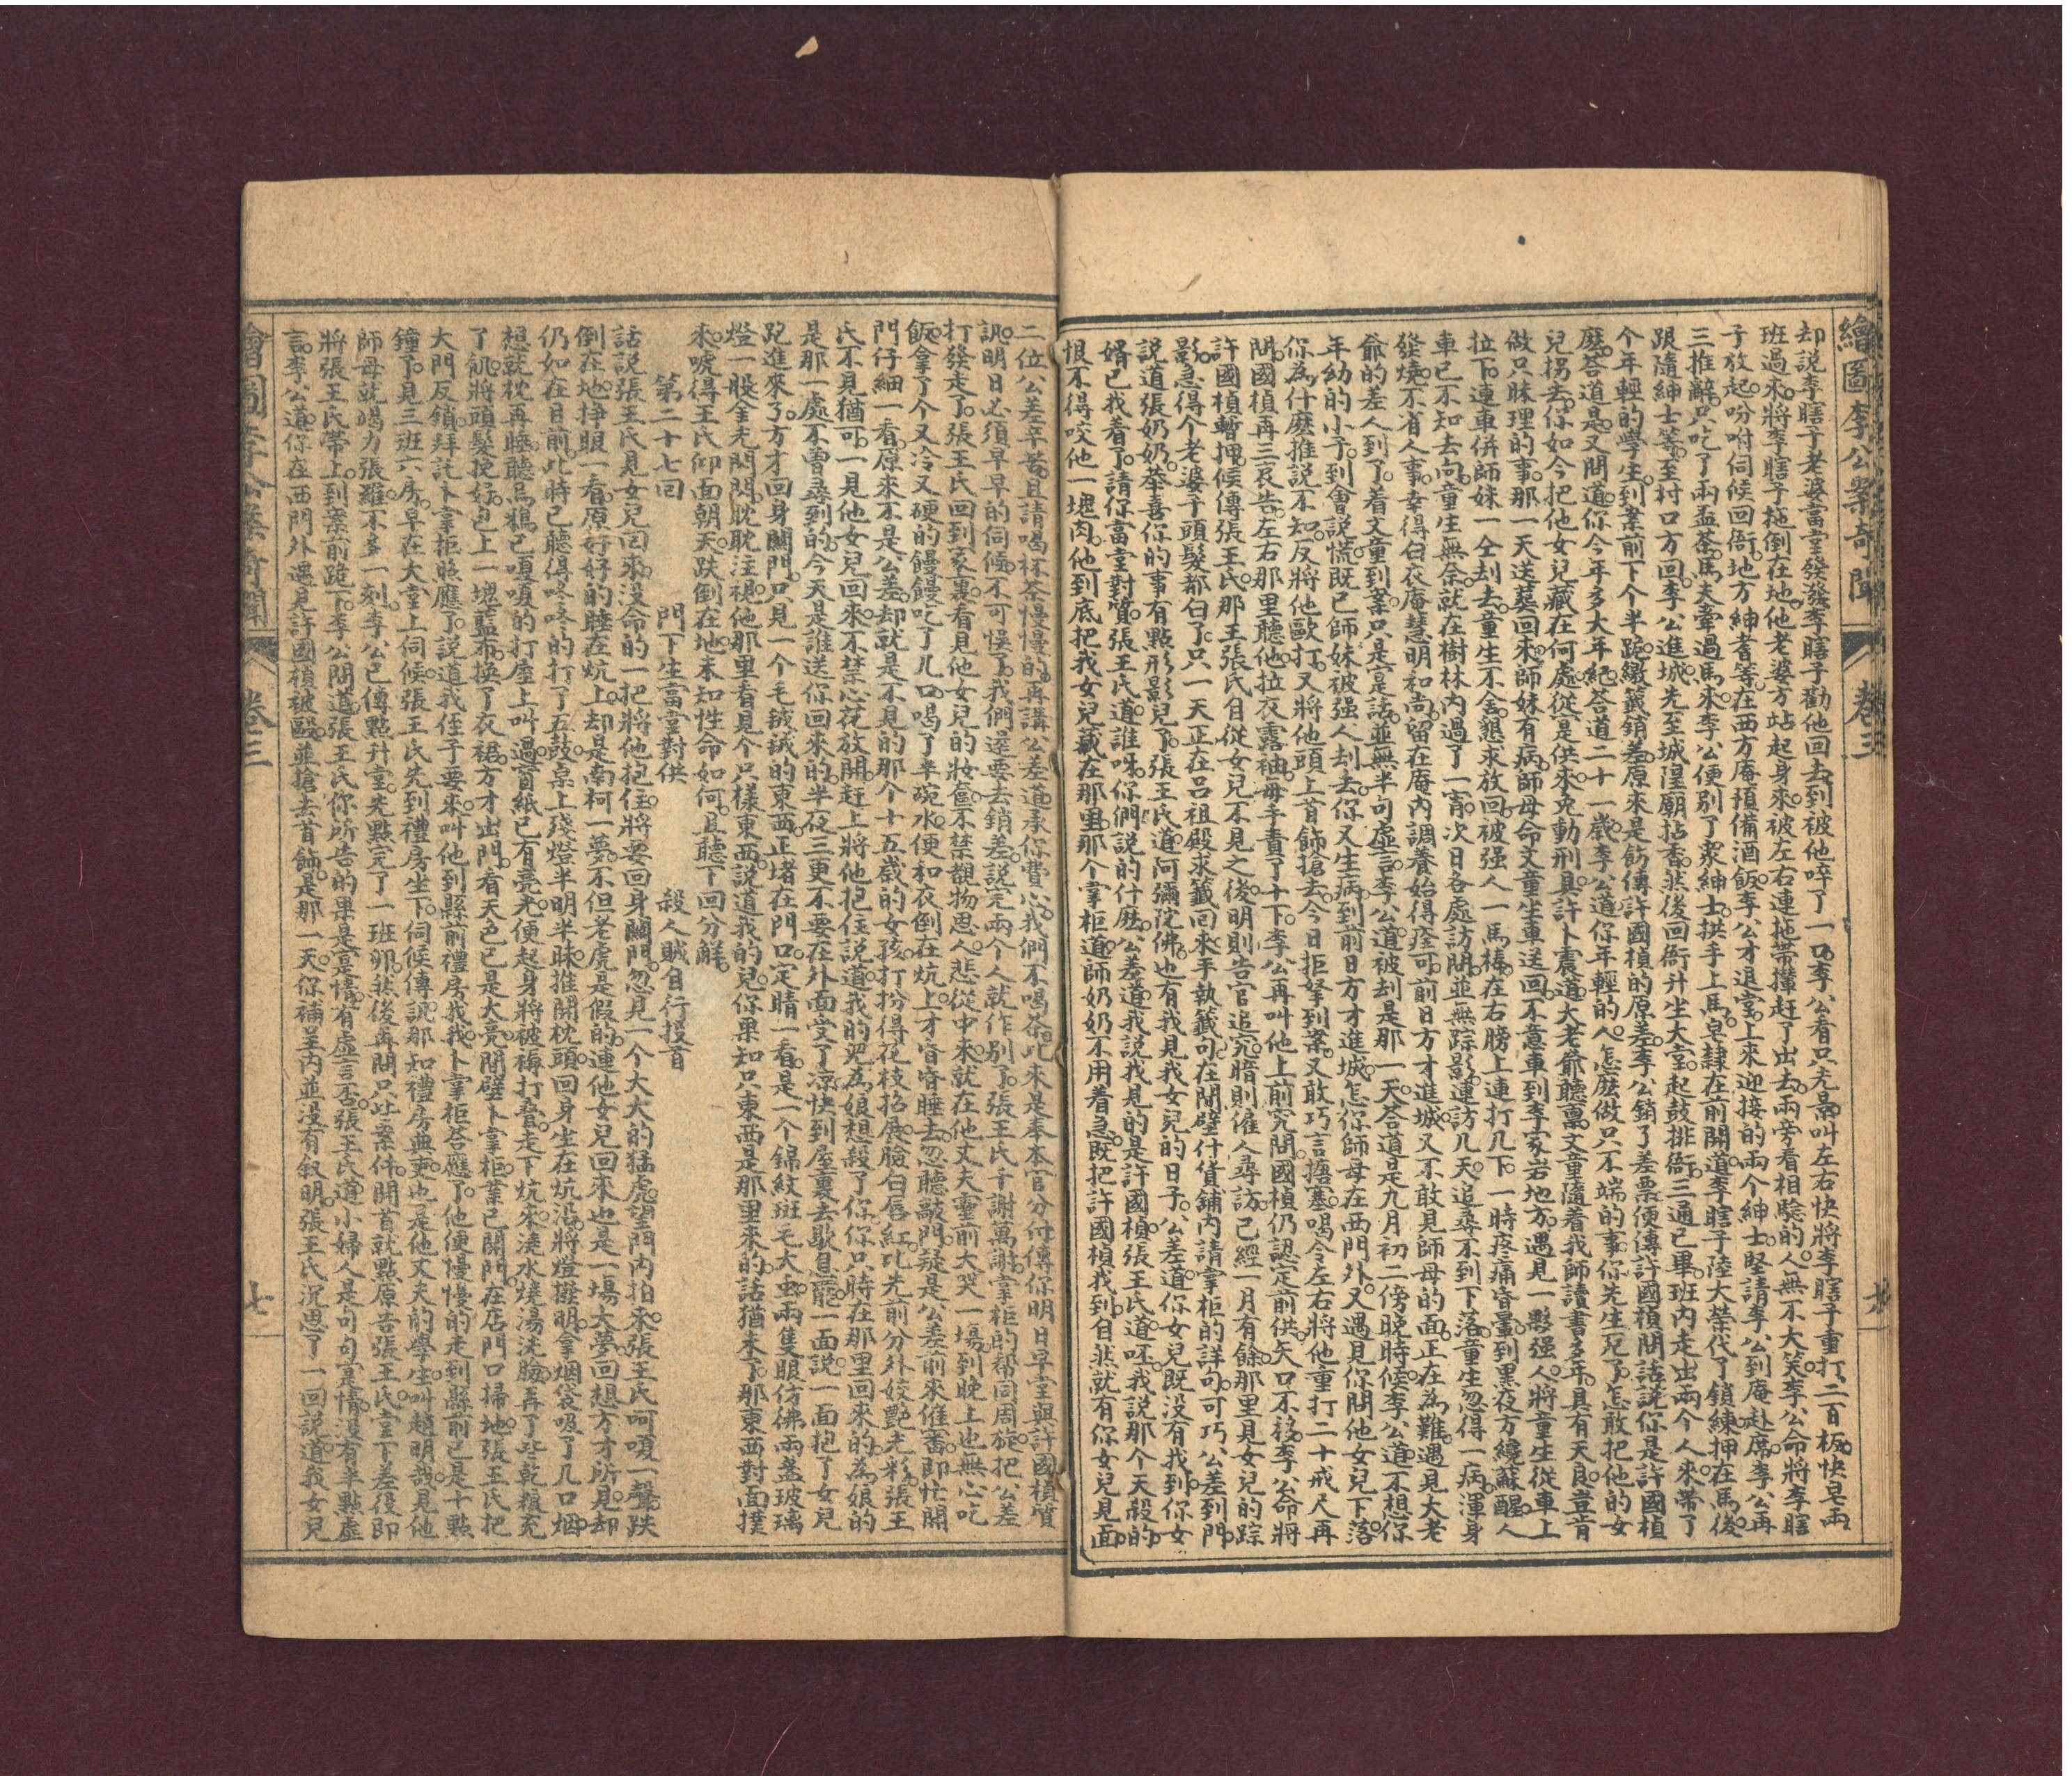 繪圖李公案奇聞 卷三
却說李瞎子老婆當堂發潑李瞎子勸他回去到被他啐了一口李公看只光景叫左右快將李瞎子重打二百板快皂兩
班過來將李瞎子拖倒在地他老婆方站起身來被左右連拖帶攆赶了出去兩旁看相驗的人無不大笑李公命將李瞎
子放起吩咐伺候回衙地方紳耆等在西方庵預備酒飯李公才退堂上來迎接的兩个紳士堅請李公到庵赴席李公再
三推辭只吃了兩盃茶馬夫牽過馬來李公便別了衆紳士拱手上馬皂隸在前開道李瞎子陸大榮代了鎖練押在馬後
跟隨紳士等至村口方回李公進城先至城隍廟拈香然後回衙升坐大堂起鼓排衙三通已畢班內走出兩个人來帶了
个年輕的學生到案前下个半跪繳籤銷差原來是飭傳許國楨的原差李公銷了差票便傳許國楨問話說你是許國楨
麽答道是又問道你今年多大年紀答道二十一歲李公道你年輕的人怎麽做只不端的事你先生死了怎敢把他的女
兒拐去你如今把他女兒藏在何處從實供來免動刑具許卜震道大老爺聽稟文童隨着我師讀書多年具有天良豈肯
做只昧理的事那一天送葬回來師妹有病師母命文童坐車送回不意車到李家岩地方遇見一夥强人將童生從車上
拉下連車併師妹一仝刦去童生不舍懇求放回被强人一馬棒在右膀上連打几下一時疼痛昏暈到黑夜方纔蘇醒人
車已不知去向童生無奈就在樹林內過了一宵次日各處訪問並無踪影連訪几天追尋不到下落童生忽得一病渾身
發燒不省人事幸得白衣庵慧明和尚留在庵內調養始得痊可前日方才進城又不敢見師母的面正在為難遇見大老
爺的差人到了着文童到案只是實話並無半句虛言李公道被刦是那一天答道是九月初二傍晚時候李公道不想你
年幼的小子到會說慌既已師妹被强人刦去你又生病到前日方才進城怎你師母在西門外又遇見你問他女兒下落
你為什麽推說不知反將他毆打又將他頭上首飾搶去今日拒拏到案又敢巧言搪塞喝令左右將他重打二十戒尺再
問國楨再三哀告左右那里聽他拉衣露袖每手責了十下李公再叫他上前究問國楨仍認定前供矢口不移李公命將
許國楨暫押候傳張王氏那王張氏自從女兒不見之後明則告官追究暗則僱人尋訪已經一月有餘那里見女兒的踪
影急得个老婆子頭髮都白了只一天正在呂祖殿求籤回來手執籤句在間壁什貨鋪內請掌柜的詳可可巧公差到門
說道張奶奶恭喜你的事有點形影兒了張王氏道阿彌陀佛也有我見我女兒的日子公差道你女兒既沒有找到你女
婿已找着了請你當堂對質張王氏道誰呀你們說的什麽公差道我說我見的是許國楨張王氏道呸我說那个天殺的
恨不得咬他一塊肉他到底把我女兒藏在那里那个掌柜道師奶奶不用着急既把許國楨找到自然就有你女兒見面
二位公差辛苦且請喝杯茶慢慢的再講公差道承你費心我們不喝茶此來是奉本官分付傳你明日早堂與許國楨質
訊明日必須早早的伺候不可悞了我們還要去銷差說完兩个人就作別了張王氏千謝萬謝掌柜的帮同周旋把公差
打發走了張王氏回到家裏看見他女兒的妝奩不禁覩物思人悲從中來就在他丈夫靈前大哭一塲到晚上也無心吃
飯拿了个又冷又硬的饅饅吃了几口喝了半碗水便和衣倒在炕上才昏昏睡去忽聽敲門疑是公差前來催審即忙開
門仔細一看原來不是公差却就是不見的那个十五歲的女孩打扮得花枝招展臉白唇紅比先前分外姣艷光彩張王
氏不見猶可一見他女兒回來不禁心花放開赶上將他抱住說道我的兒為娘想殺了你你只時在那里回來的為娘的
是那一處不曾尋到的今天是誰送你回來的半夜三更不要在外面受了凉快到屋裏去歇息罷一面說一面抱了女兒
跑進來了方才回身關門只見一个毛絨絨的東西正堵在門口定睛一看是一个錦紋斑毛大虫兩隻眼仿彿兩盞玻璃
燈一般金光閃閃眈眈注視他那里看見个只樣東西說道我的兒你果知只東西是那里來的話猶未了那東西對面撲
來唬得王氏仰面朝天跌倒在地未知性命如何且聽下回分解
第二十七回 門下生當堂對供 殺人賊自行投首
話說張王氏見女兒回來沒命的一把將他抱住將要回身關門忽見一个大大的猛虎望門內拍來張王氏呵嗄一聲跌
倒在地掙眼一看原好好的睡在炕上却是南柯一夢不但老虎是假的連他女兒回來也是一塲大夢回想方才所見却
仍如在目前此時已聽得咚咚的打了五鼓桌上殘燈半明半昧推開枕頭回身坐在炕沿將燈撥明拿烟袋吸了几口烟
想就枕再睡聽烏鴉已嗄嗄的打屋上叫過窗紙已有亮光便起身將被褥打叠走下炕來澆水燒湯洗臉再了些乾粮充
了飢將頭髮挽好包上一塊藍布換了衣裙方才出門看天色已是大亮間壁卜掌柜業已開門在店門口掃地張王氏把
大門反鎖拜託卜掌柜照應了說道我侄子要來叫他到縣前禮房找我卜掌柜答應了他便慢慢的走到縣前已是十點
鐘了見三班六房早在大堂上伺候張王氏先到禮房坐下伺候傳說那知禮房典吏也是他丈夫的學生叫趙明哉見他
師母就竭力張羅不多一刻李公已傳點升堂先點完了一班卯然後再問只些案件開首就點原告張王氏堂下差役即
將張王氏帶上到案前跪下李公問道張王氏你所告的果是實情有虛言否張王氏道小婦人是句句實情沒有半點虛
言李公道你在西門外遇見許國楨被毆並搶去首飾是那一天你補呈內並沒有敘明張王氏沉思了一回說道我女兒
繪圖李公案奇聞 卷三 七